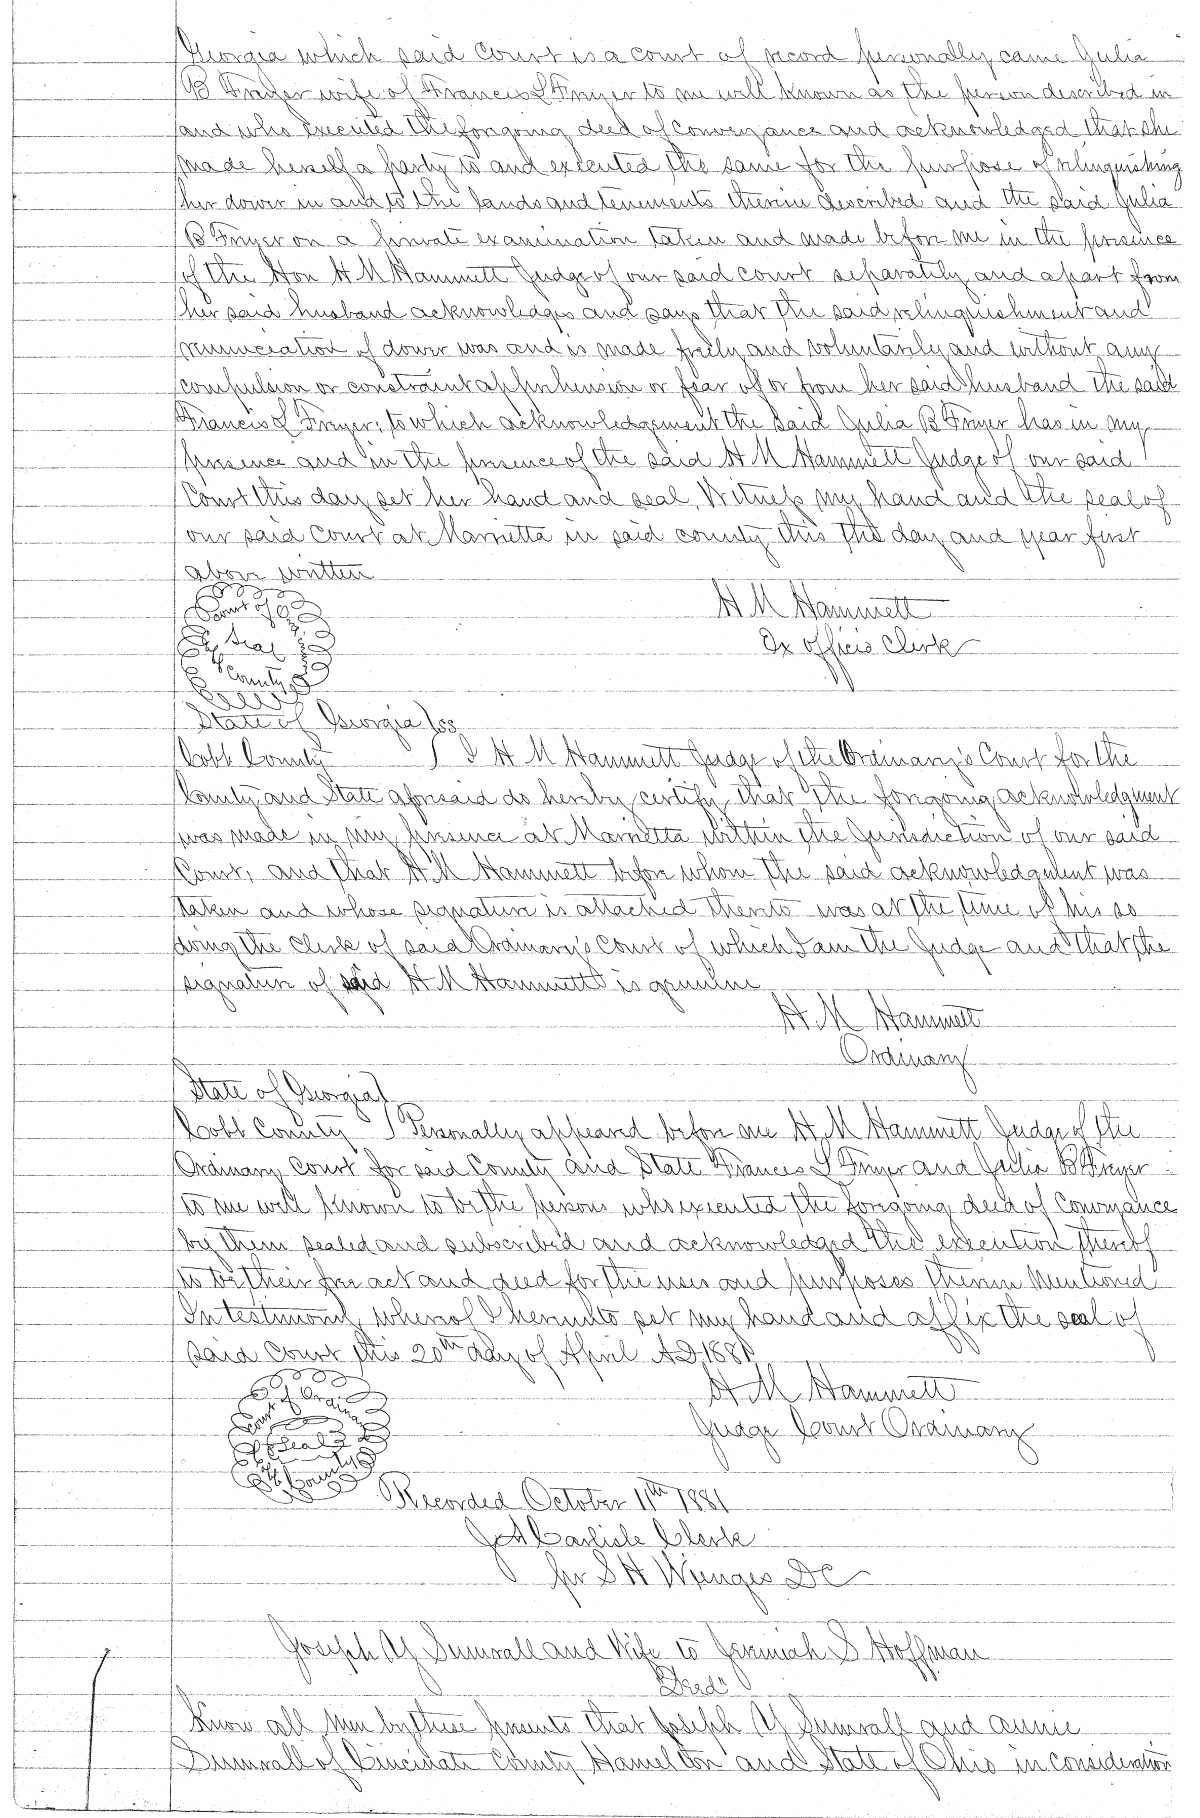 Georgia which said Court is a court of record personally came Julia
B Fryer wife of Francis L Fryer to me well known as the person described in
and who executed the forgoing deed of conveyance and acknowledged that she
made herself a party to and executed the same for the purpose of relinquishing
her dower in and to the lands and tenements therein described and the said Julia
B Fryer on a private examination taken and made before me in the presence
of the Hon H M Hammett Judge of our said court separately and apart from
her said husband acknowledges and says that the said relinquishment and
renunciation of dower was and is made freely and voluntarily and without any
compulsion or constraint apprehension or fear of or from her said husband the said
Francis L Fryer, to which acknowledgement the said Julia B Fryer has in my
presence and in the presence of the said H M Hammett Judge of our said
Court this day set her hand and seal. Witness my hand and the seal of
our said Court at Marrietta in said county this the day and year first
above written
H M Hammett
Court of
Seal
County
Ex officio Clerk
State of Georgia } ss
Cobb County } I H M Hammett Judge of the Ordinary's Court for the
County and State aforesaid do hereby certify that the forgoing acknowledgment
was made in my presence at Marrietta within the Jurisdiction of our said
Court, and that H M Hammett before whom the said acknowledgment was
taken and whose signature is attached thereto was at the time of his so
doing the Clerk of said Ordinary's Court of which I am the Judge and that the
signature of said H M Hammett is genuine
H M Hammett
Ordinary
State of Georgia }
Cobb County } Personally appeared before me H M Hammett Judge of the
Ordinary Court for said County and State Frances L Fryer and Julia B Fryer
to me well known to be the persons who executed the forgoing deed of Conveyance
by them sealed and subscribed and acknowledged the execution thereof
to be their free act and deed for the uses and purposes therein mentioned
In testimony whereof I hereunto set my hand and affix the seal of
said Court this 20th day of April A D 1881
H M Hammett
Court of Ordinary
Seal
County
Judge Court Ordinary
Recorded October 11th 1881
J A Carlisle Clerk
per S H Wienges DC
Joseph Y Sumrall and Wife to Jeremiah S Hoffman
"Deed"
Know all Men by these presents that Joseph Y Sumrall and Annie
Sumrall of Cincinati County Hamelton and State of Ohio in consideration